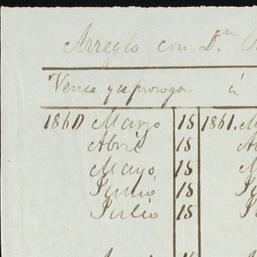 Arreglo con Dn
Vence y se proroga á
1860 Marzo 15 1861. M
Abril 15 A
Mayo, 15 M
Junio 15 Ju
Julio 15 Ju